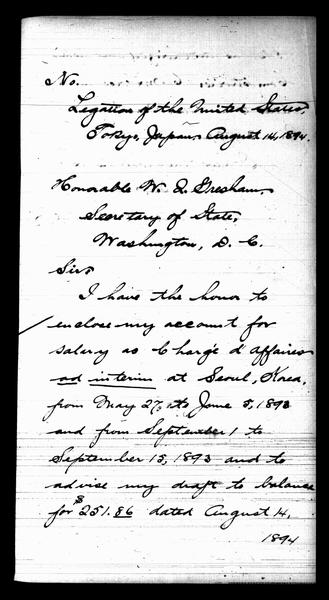 No.
Legation of the United States,
Tokyo, Japan, August 14, 1894.
Honorable W. Q. Gresham,
Secretary of State,
Washington, D. C.
Sir:
I have the honor to
enclose my account for
salary as Chargé d'affaires
ad interim at Seoul, Korea,
from May 27, to June 5, 1893
and from September 1 to
September 15, 1893 and to
advise my draft to balance
for $251.86 dated August 14,
1894